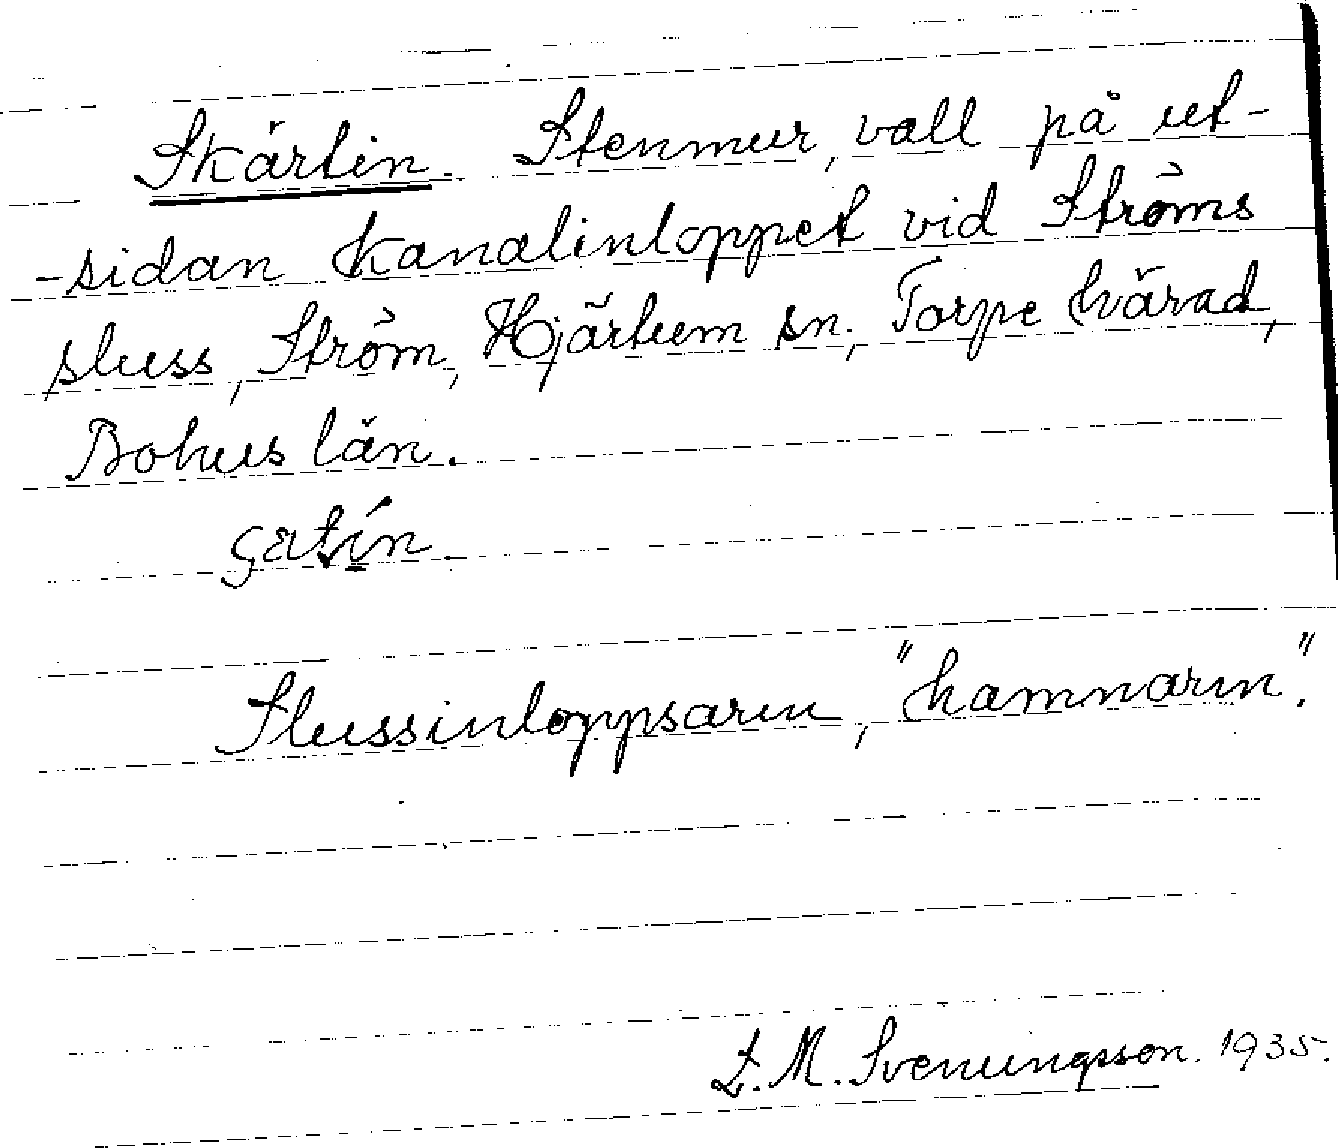 Skärtin. Stenmur, vall på ut-
-sidan kanalinloppet vid Ströms
sluss, Ström, Hjärtum sn, Torpe härad,
Bohus län.
Slussinloppsarm, "hamnarm".
L. M. Svenungsson. 1935.